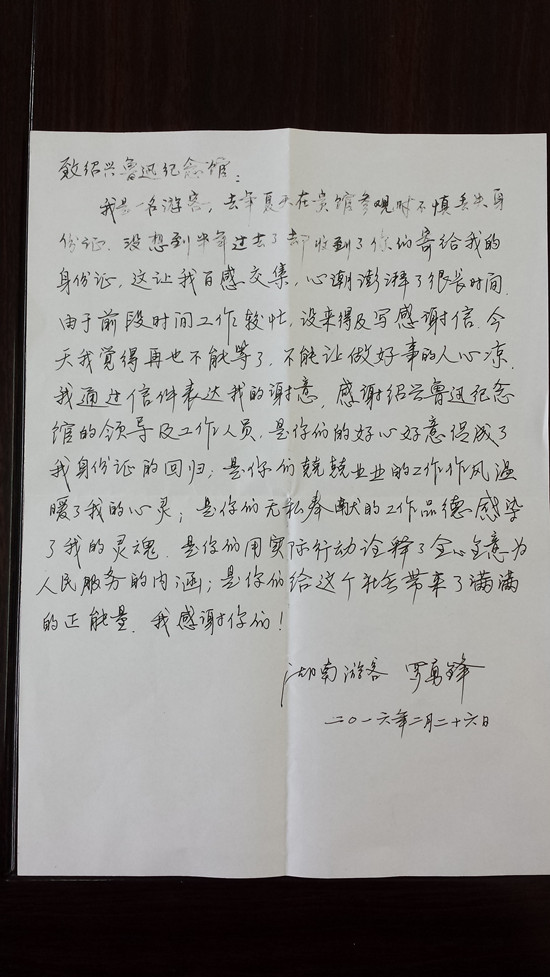 致绍兴鲁迅纪念馆:
我是一名游客,去年夏天在贵馆参观时不慎丢失身
份证.没想到半年过去了却收到了你们寄给我的
身份证,这让我百感交集,心潮澎湃了很长时间.
由于前段时间工作较忙,没来得及写感谢信.今
天我觉得再也不能等了,不能让做好事的人心凉.
我通过信件表达我的谢意.感谢绍兴鲁迅纪念
馆的领导及工作人员,是你们的好心好意促成了
我身份证的回归;是你们兢兢业业的工作作风温
暖了我的心灵;是你们无私奉献的工作品德感染
了我的灵魂.是你们用实际行动诠释了全心全意为
人民服务的内涵;是你们给这个社会带来了满满
的正能量.我感谢你们!
湖南游客 罗勇锋
二〇一六年二月二十六日